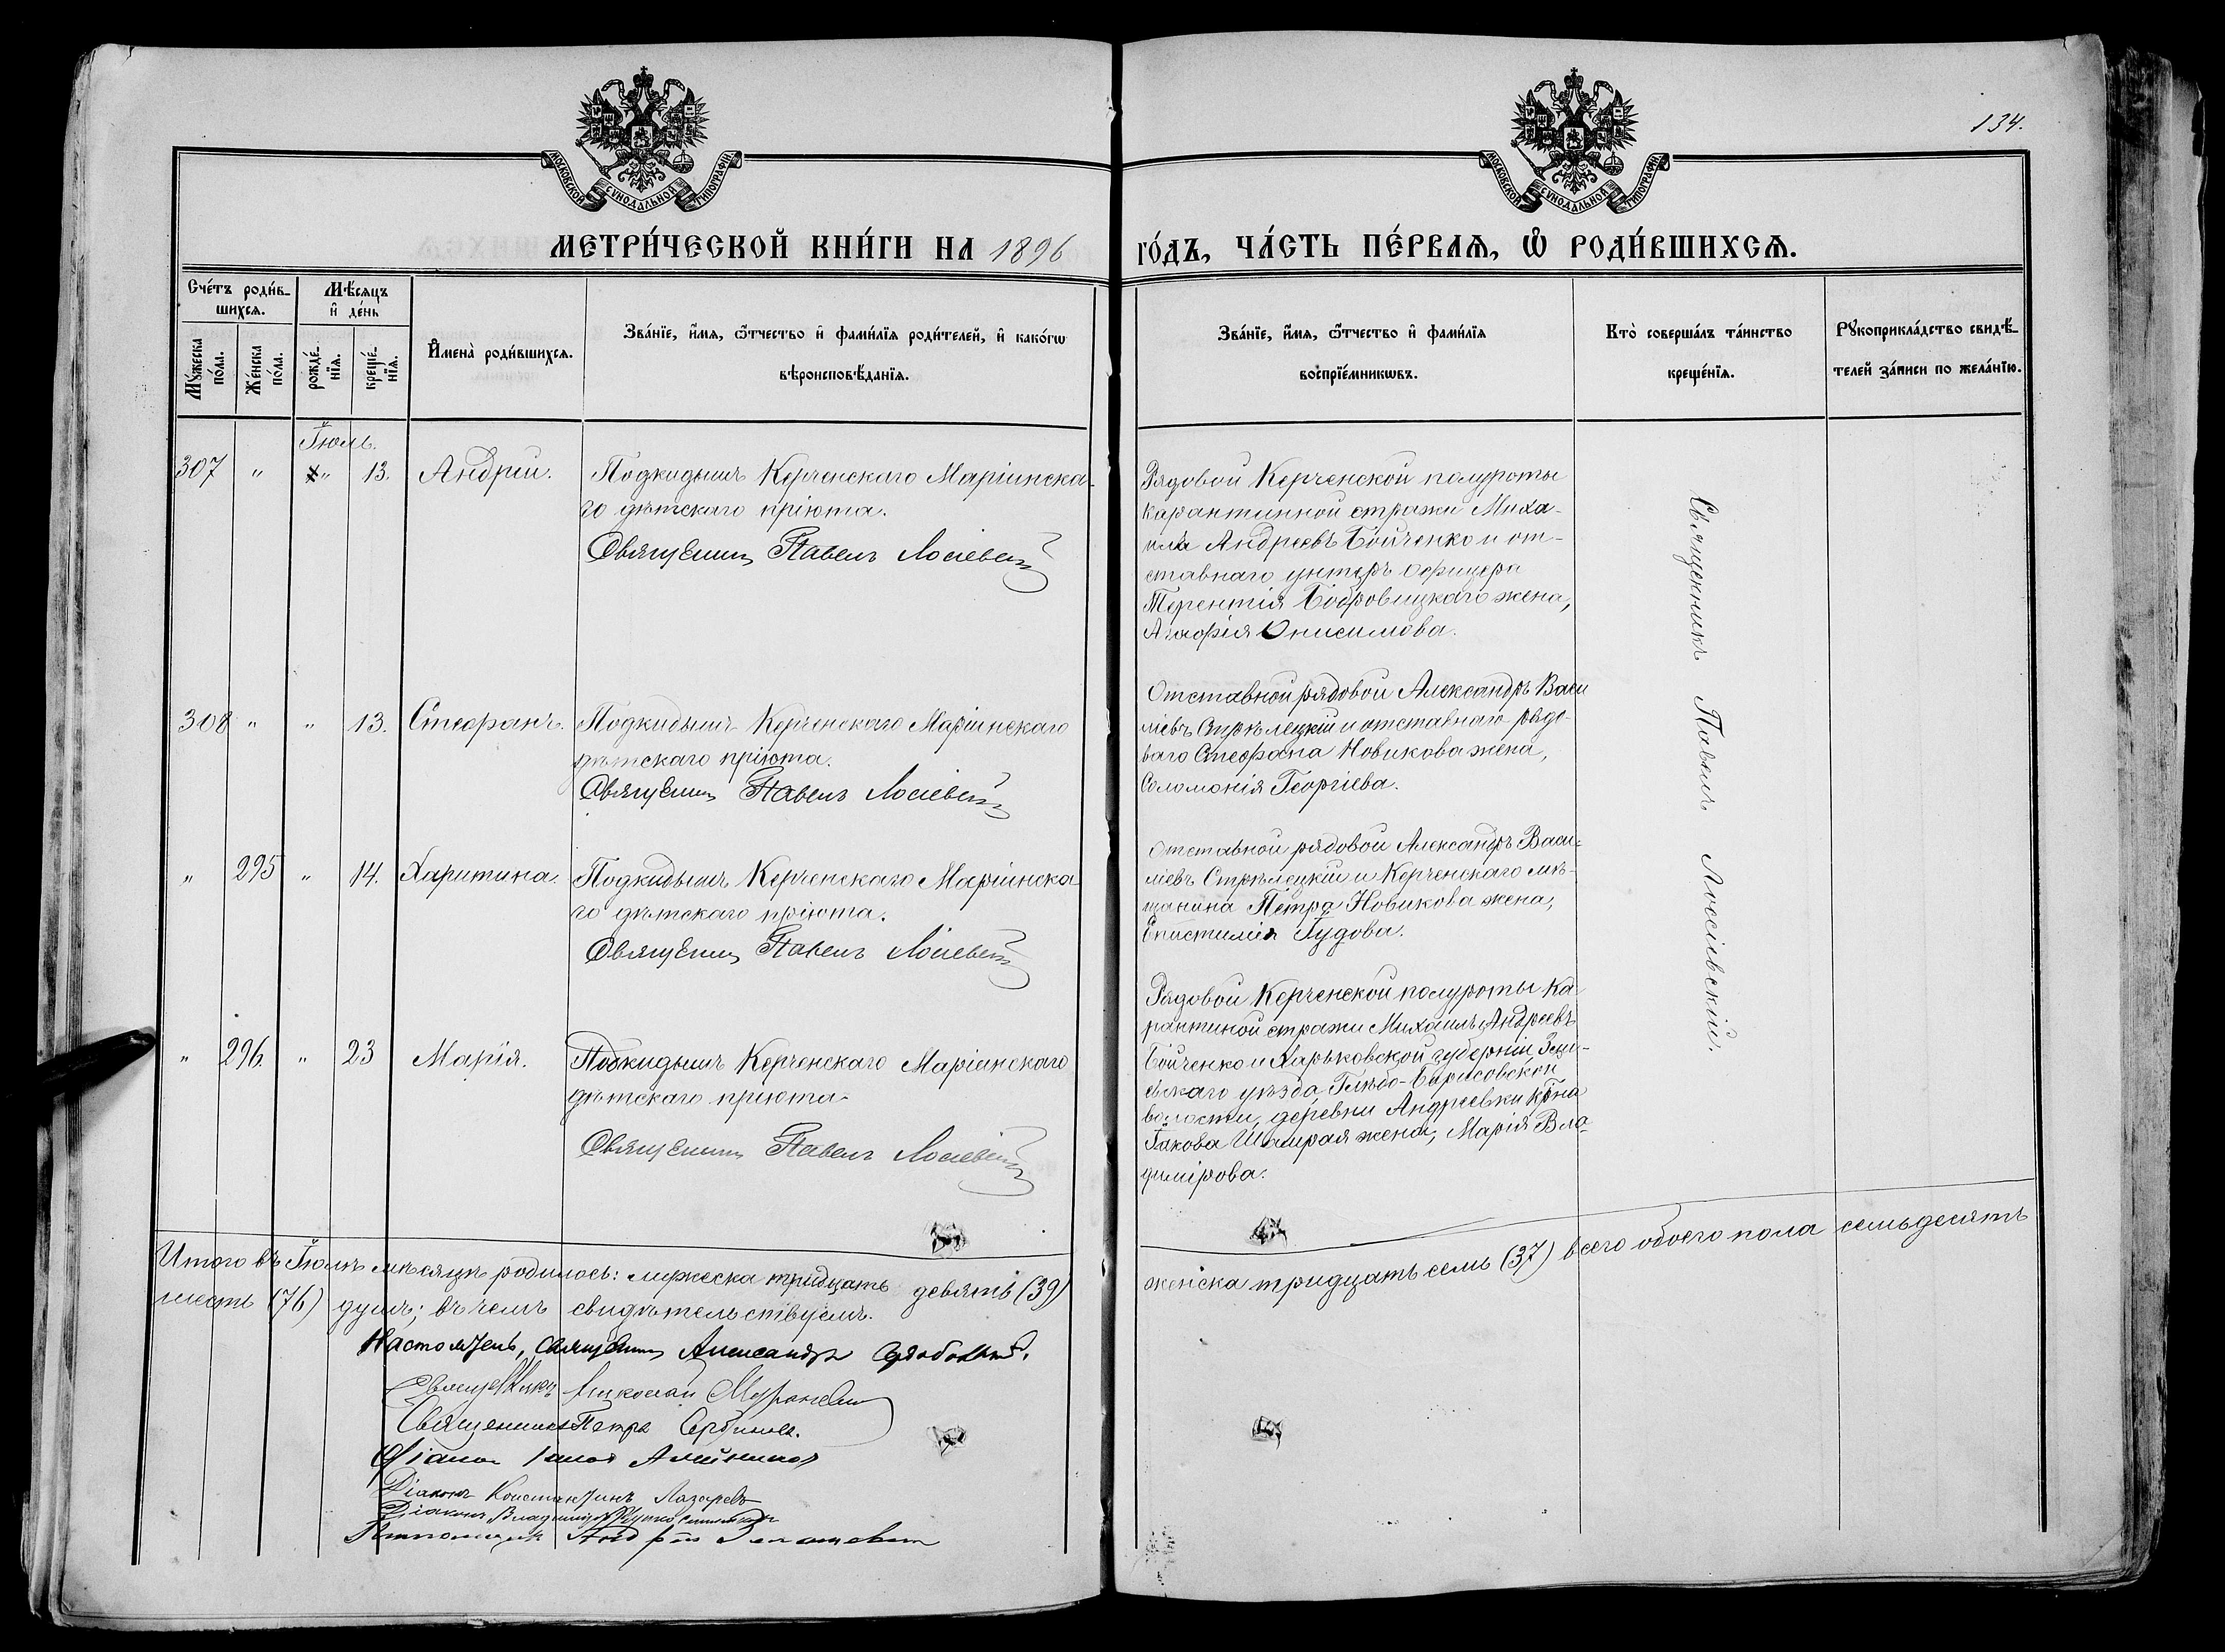 134.
МОСКОВСКОЙ СѴНОДАЛЬНОЙ ТИПОГРАФІИ.
МОСКОВСКОЙ СѴНОДАЛЬНОЙ ТИПОГРАФІИ.
МЕТРИ́ЧЕСКОЙ КНИ́ГИ НА 1896
ГО́ДЪ, ЧА́СТЬ ПЕ́РВАЯ, Ѡ҆ РОДИ́ВШИХСЯ.
Сче́тъ роди́в-
шихся.
Мѣ́сяцъ
и҆ де́нь
Мꙋ́жеска
по́ла.
Же́нска
по́ла.
рожде́-
нїя.
креще́-
нїя.
И҆мена̀ роди́вшихся.
Зва́нїе, и҆́мя, ѻ҆́тчество и҆ фами́лїя роди́телей, и҆ како́гѡ
вѣроисповѣ́данїя.
Зва́нїе, и҆́мя, ѻ҆́тчество и҆ фами́лїя
воспрїе́мникѡвъ.
Кто̀ соверша́лъ та́инство
креще́нїя.
Рꙋкоприкла́дство свидѣ́-
телей за́писи по жела́нїю.
Іюль.
307 " " 13. Андрій. Подкидышъ Керченскаго Маріинска-
го дѣтскаго пріюта.
Священник Павелъ Лосіевскій
Рядовой Керченской полуроты
карантинной стражи Миха-
илъ Андреевъ Бойченко и от-
ставнаго унтеръ офицера
Терентія Бобровицкаго жена,
Агафія Онисимова.
308 " " 13. Стефанъ. Подкидышъ Керченскаго Маріинскаго
дѣтскаго пріюта.
Священник Павелъ Лосіевскій
Отставной рядовой Александръ Васи
ліевъ Стрѣлецкій и отставнаго рядо-
ваго Стефана Новикова жена,
Соломонія Георгіева.
" 295 " 14. Харитина. Подкидышъ Керченскаго Маріинска
го дѣтскаго пріюта.
Священник Павелъ Лосіевскій
Отставной рядовой Александръ Васи-
ліевъ Стрѣлецкій и Керченскаго мѣ-
щанина Петра Новикова жена,
Епистимія Гудова.
" 296. " 23 Марія. Подкидышъ Керченскаго Маріинскаго
дѣтскаго пріюта.
Священник Павелъ Лосіевскій
Рядовой Керченской полуроты ка
рантиной стражи Михаилъ Андреевъ
Бойченко и Харьковской губерніи, Зміи-
евскаго уѣзда, Глѣбо-Борисовской
волости, деревни Андреевки кр-на
Іакова Шамрая жена, Марія Вла-
димірова.
Священникъ Павелъ Лосіевскій.
Итого въ Іюлѣ мѣсяцѣ родилось: мужеска тридцать девять (39)
женска тридцать семь (37) всего обоего пола семьдесятъ
шесть (76) душъ; въ чемъ свидѣтельствуемъ.
Настоятель, священник Александръ
Священникъ Николай
Священникъ Петръ Сербиновъ.
Діаконъ
Діаконъ Константинъ Лазаревъ
Діаконъ Владиміръ
Псаломщик Андрей